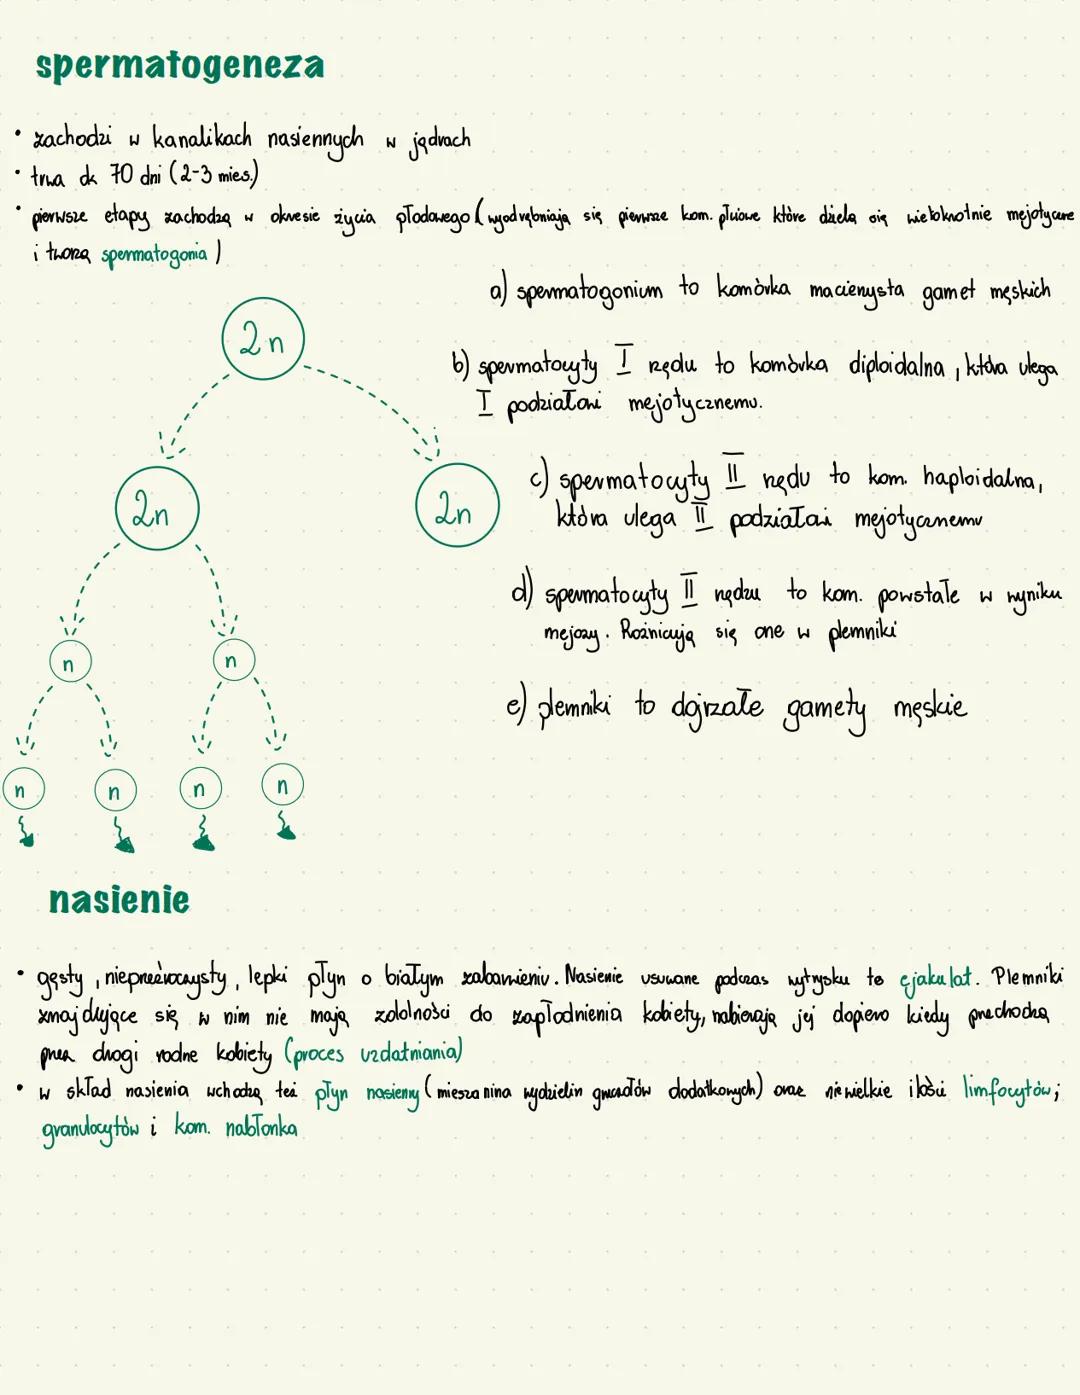 spermatogeneza
• zachodzi w kanalikach nasiennych w jądrach
• trwa ok 70 dni (2-3 mies.)
• pierwsze etapy zachodzą w okresie życia płodowego (wyodrębniają się pierwsze kom. płciowe które dzielą się wielokrotnie mejotyczne
i tworzą spermatogonia)
a) spermatogonium to komórka macierzysta gamet męskich
2n
b) spermatocyty I rzędu to komórka diploidalna, która ulega
I podziałowi mejotycznemu.
c) spermatocyty II rzędu to kom. haploidalna,
która ulega II podziałowi mejotycznemu
2n 2n
d) spermatocyty II rzędu to kom. powstałe w wyniku
mejozy. Różnicują się one w plemniki
n n
e) plemniki to dojrzałe gamety męskie
n n n n
nasienie
• gęsty, nieprzeźroczysty, lepki płyn o białym zabarwieniu. Nasienie usuwane podczas wytrysku to ejakulat. Plemniki
znajdujące się w nim nie mają zdolności do zapłodnienia kobiety, nabierają jej dopiero kiedy przechodzą
przez drogi rodne kobiety (proces uzdatniania)
• w skład nasienia wchodzą też płyn nasienny (mieszanina wydzielin gruczołów dodatkowych) oraz niewielkie ilości limfocytów;
granulocytów i kom. nabłonka